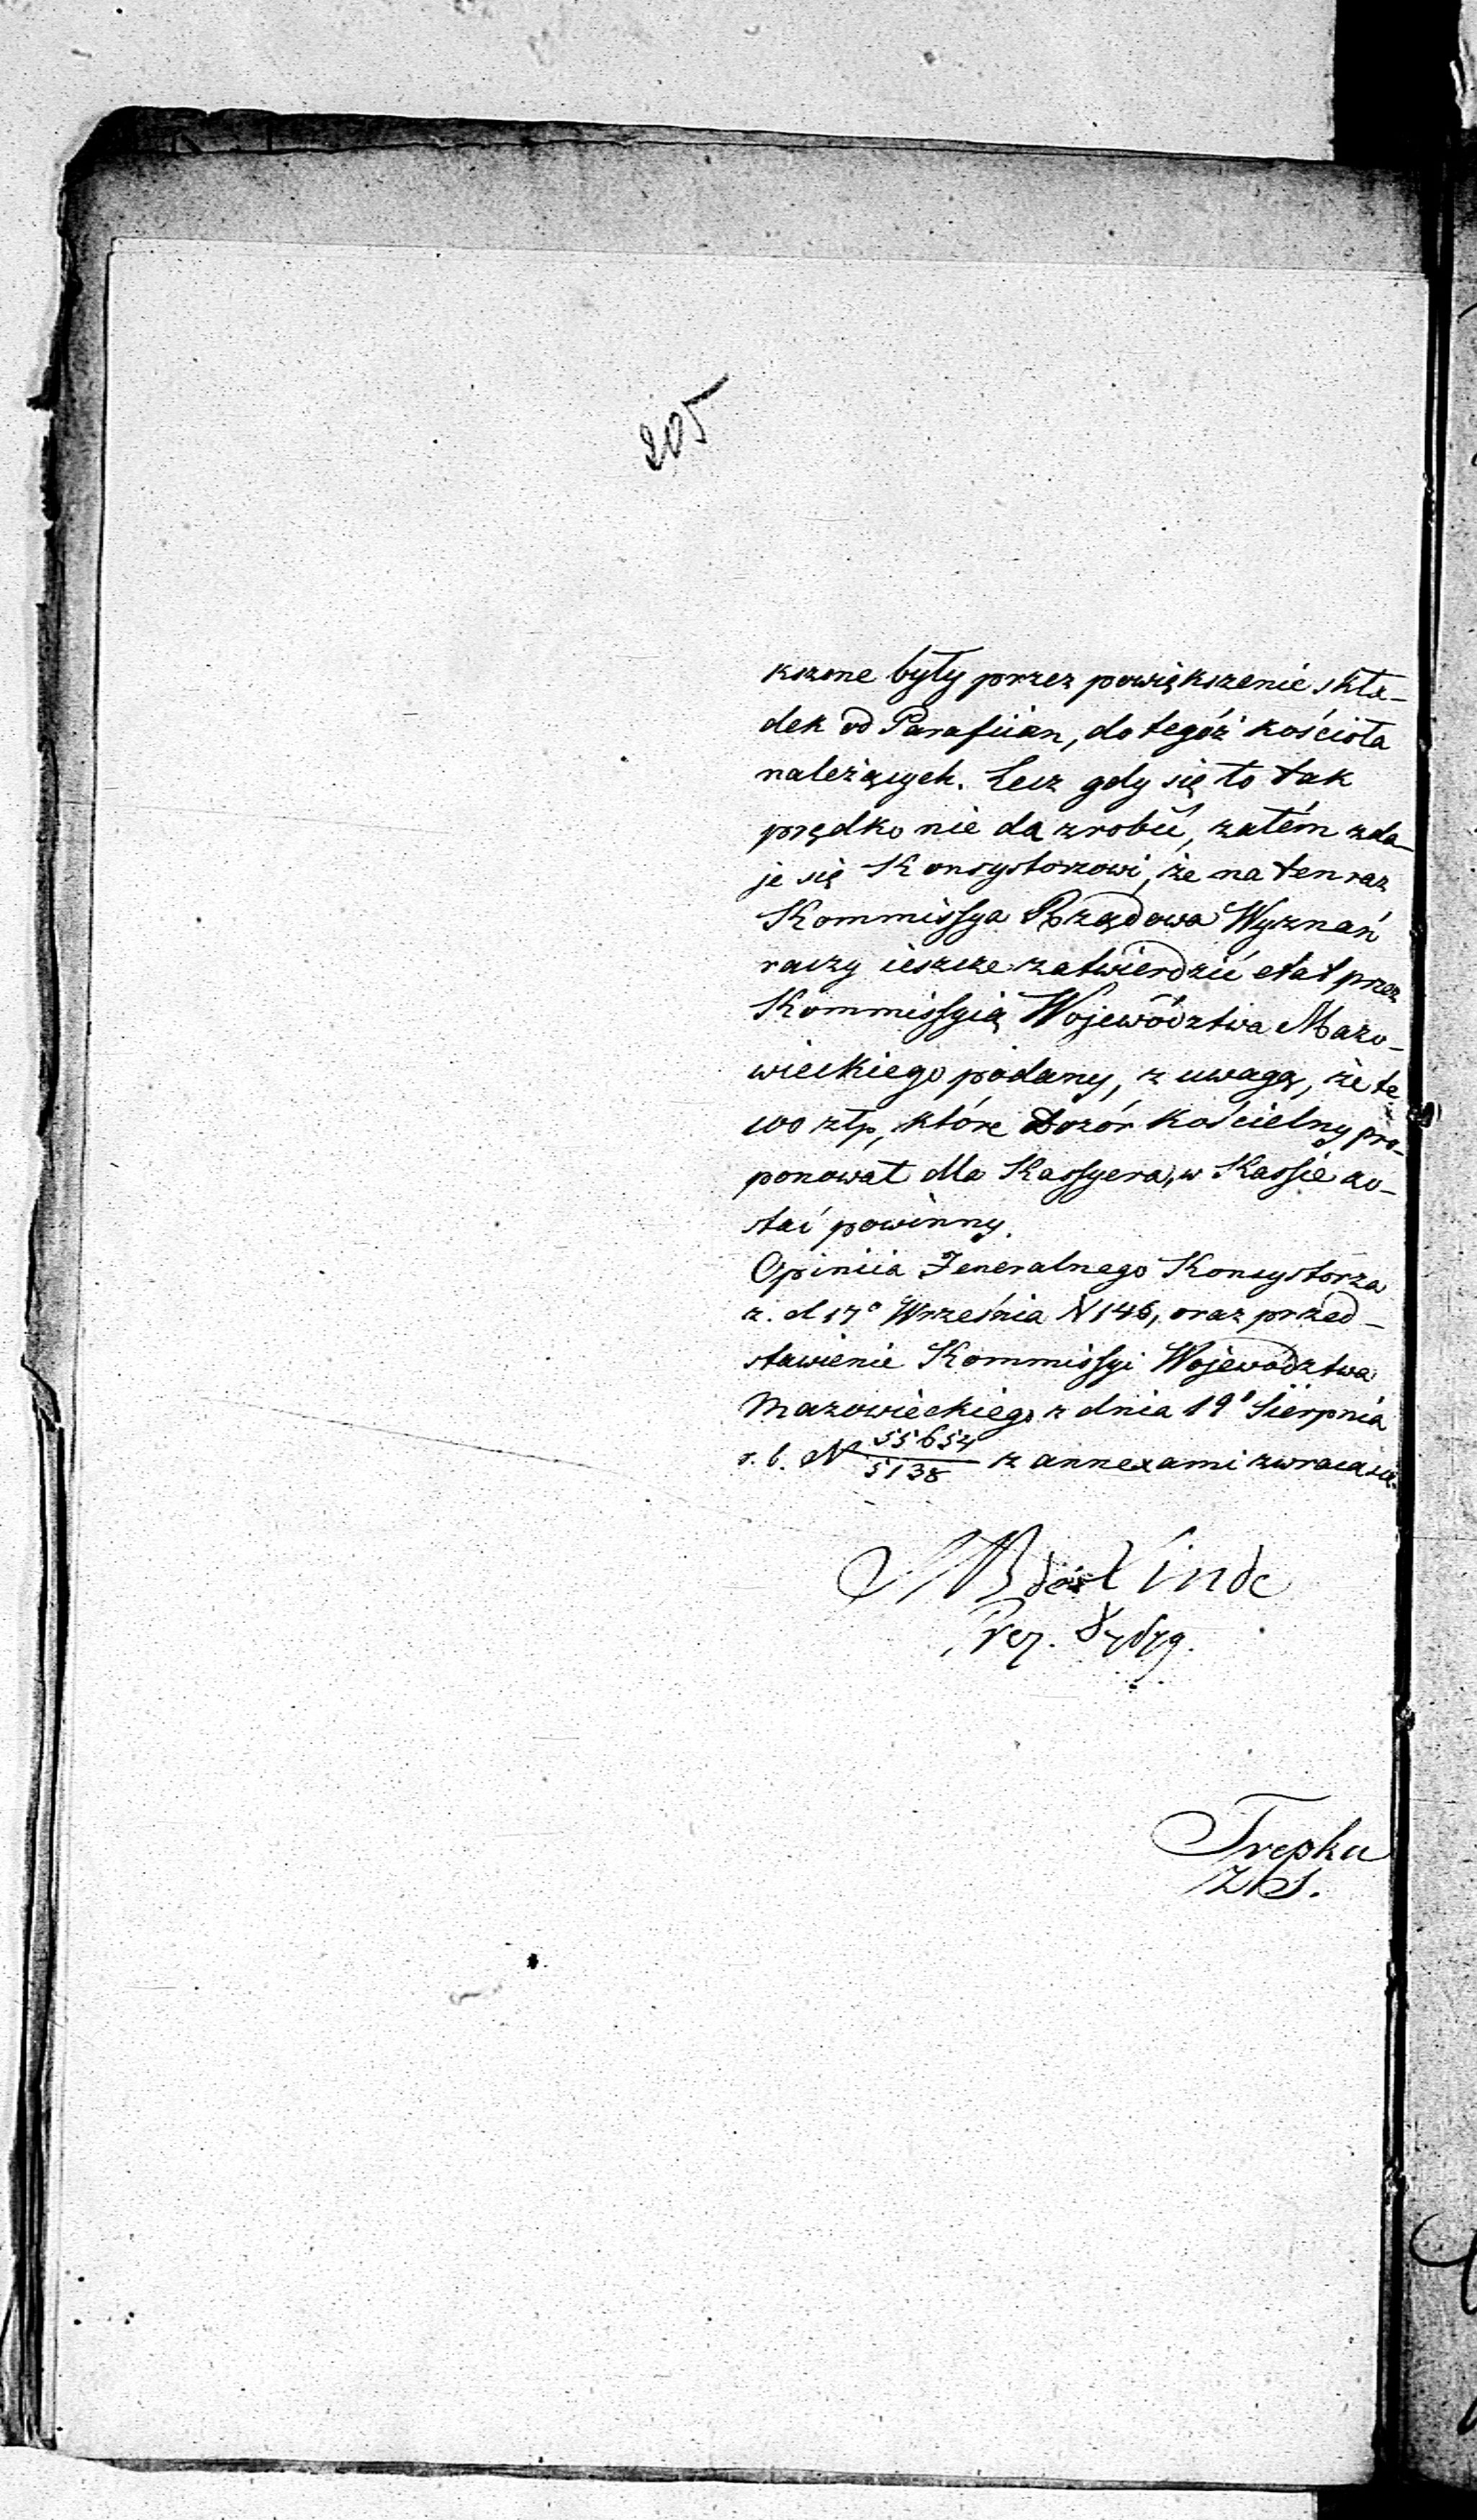 205
kszone były przez powiększenie skła-
dek od Parafiian, do tegóż kościoła
należących. Lecz gdy się to tak
prędko nie da zrobić, zatém zda-
je się Konsystorzowi, że na ten raz
Kommissya Rządowa Wyznań
raczy ieszcze zatwierdzić etat przez
Kommissyią Województwa Mazo-
wieckiego podany, z uwagą, że te
100 złp, które Dozór Kościelny pro-
ponował dla Kassyera, w Kassie zo-
stać powinny.
Opiniia Jeneralnego Konsystorza
z. d 17° Września N 146, oraz przed-
stawienie Kommissyi Województwa
Mazowieckiego z dnia 19° Sierpnia
r. b. N 55654/5138 z annexami zwraca się.
Linde
Prez.
Trepka
Z S.